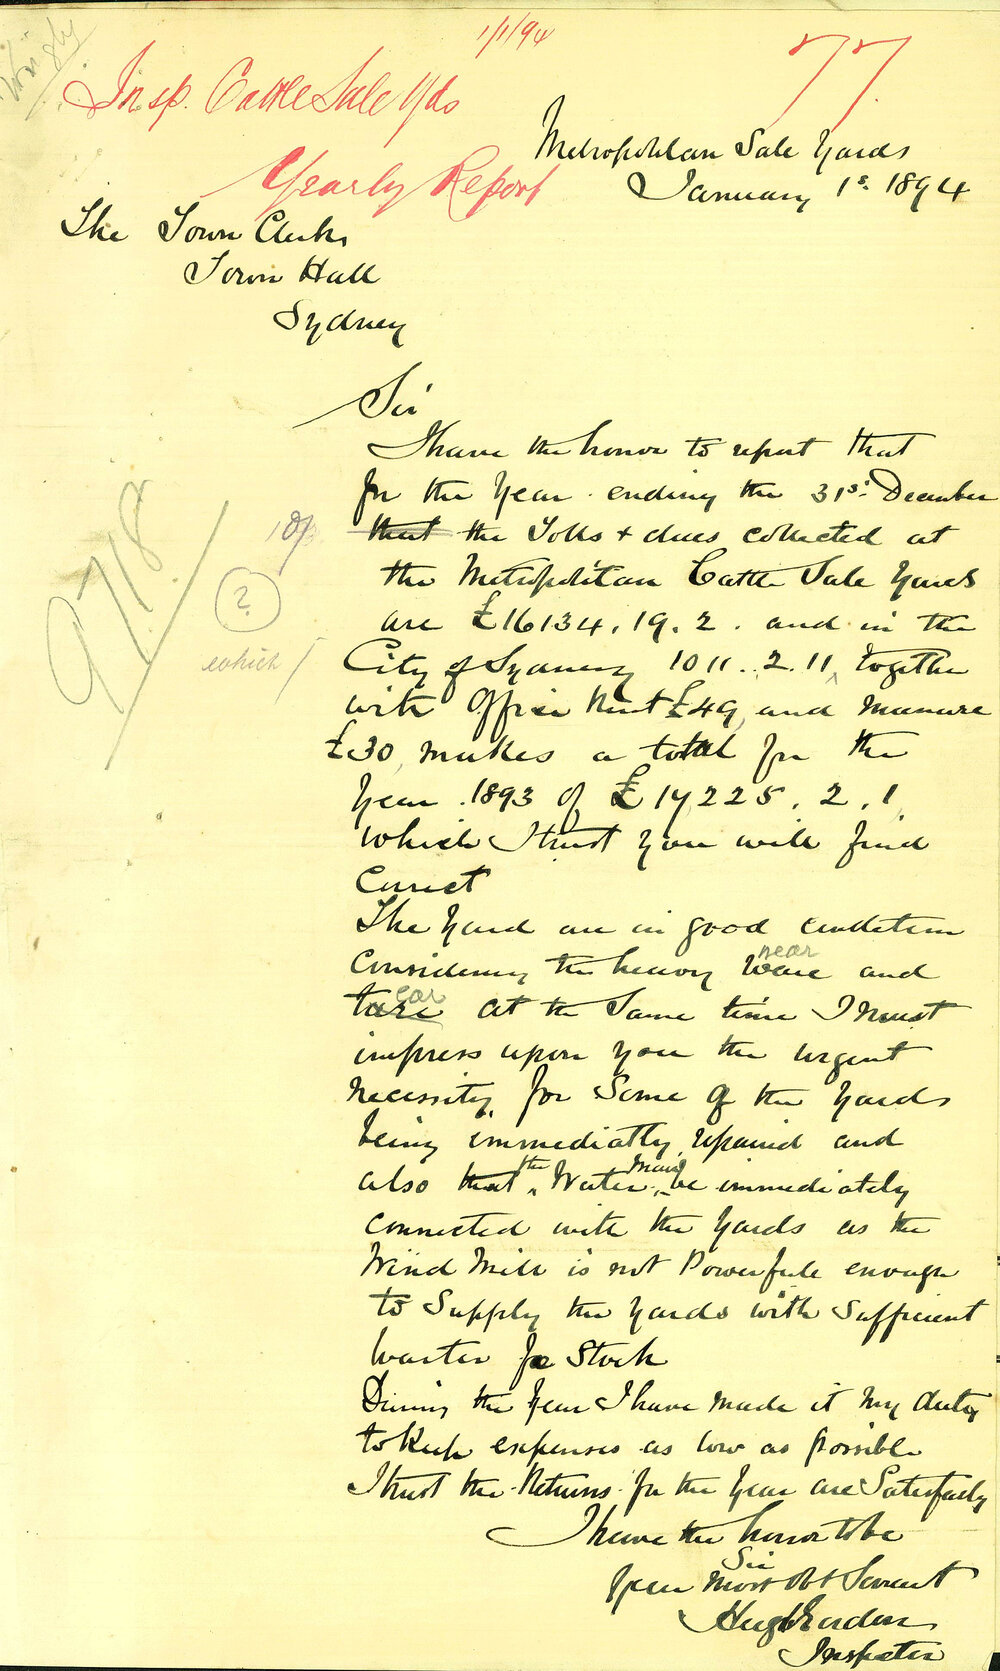 1/1/94
77
Insp. Cattle Sale Yds
Yearly Report
Metropolitan Sale Yards
January 1s. 1894
The Town Clerk
Town Hall
Sydney
Sir
I have the honor to report that
for the Year ending the 31st December
that the Tolls + dues collected at
the Metropolitan Cattle Sale Yards
are £16134.19.2. and in the
City of Sydney 1011..2.11, together
with Office Rent £49, and manure
£30, makes a total for the
Year 1893 of £17225.2.1
which I trust you will find
Correct
The Yard are in good condition
near
Considering the heavy ware and
ear
tare at the Same time I must
impress upon you the urgent
necessity, for Some of the Yards
being immediatly repaired and
the main
also that Water be immediately
connected with the Yards as the
Wind Mill is not Powerfule enough
to Supply the Yards with Sufficient
Warter for Stock
During the Year I have made it my duty
to Keep expenses as low as possible
I trust the Returns for the Year are Satisfactly
I have the honor to be
Sir
Your Most Obt Servant
Hugh
Inspector
918
?
which /